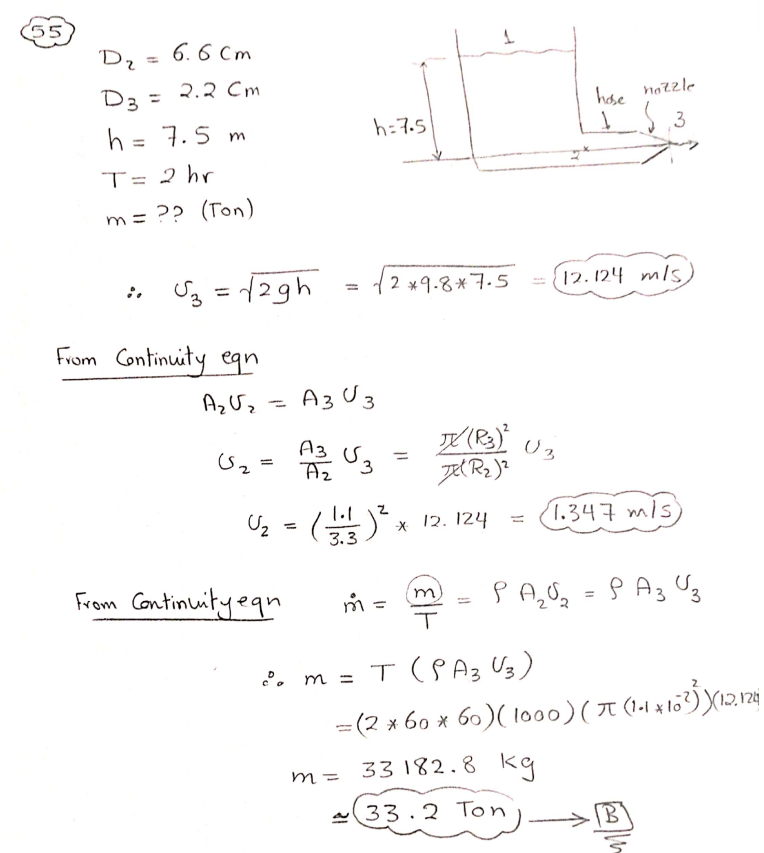 55
D₂ = 6.6 Cm
D₃ = 2.2 Cm
h = 7.5 m
T = 2 hr
m = ?? (Ton)
1
h=7.5
hose
nozzle
3
2
∴ υ₃ = √2gh = √2*9.8*7.5 = 12.124 m/s
From Continuity eqn
A₂υ₂ = A₃υ₃
υ₂ = A₃/A₂ υ₃ = π(R₃)²/π(R₂)² υ₃
υ₂ = (1.1/3.3)² * 12.124 = 1.347 m/s
From Continuity eqn ṁ = m/T = ρ A₂υ₂ = ρ A₃ υ₃
∴ m = T (ρA₃ υ₃)
=(2*60*60)(1000)(π(1.1*10⁻²)²)(12.124
m = 33182.8 kg
≃ 33.2 Ton → B